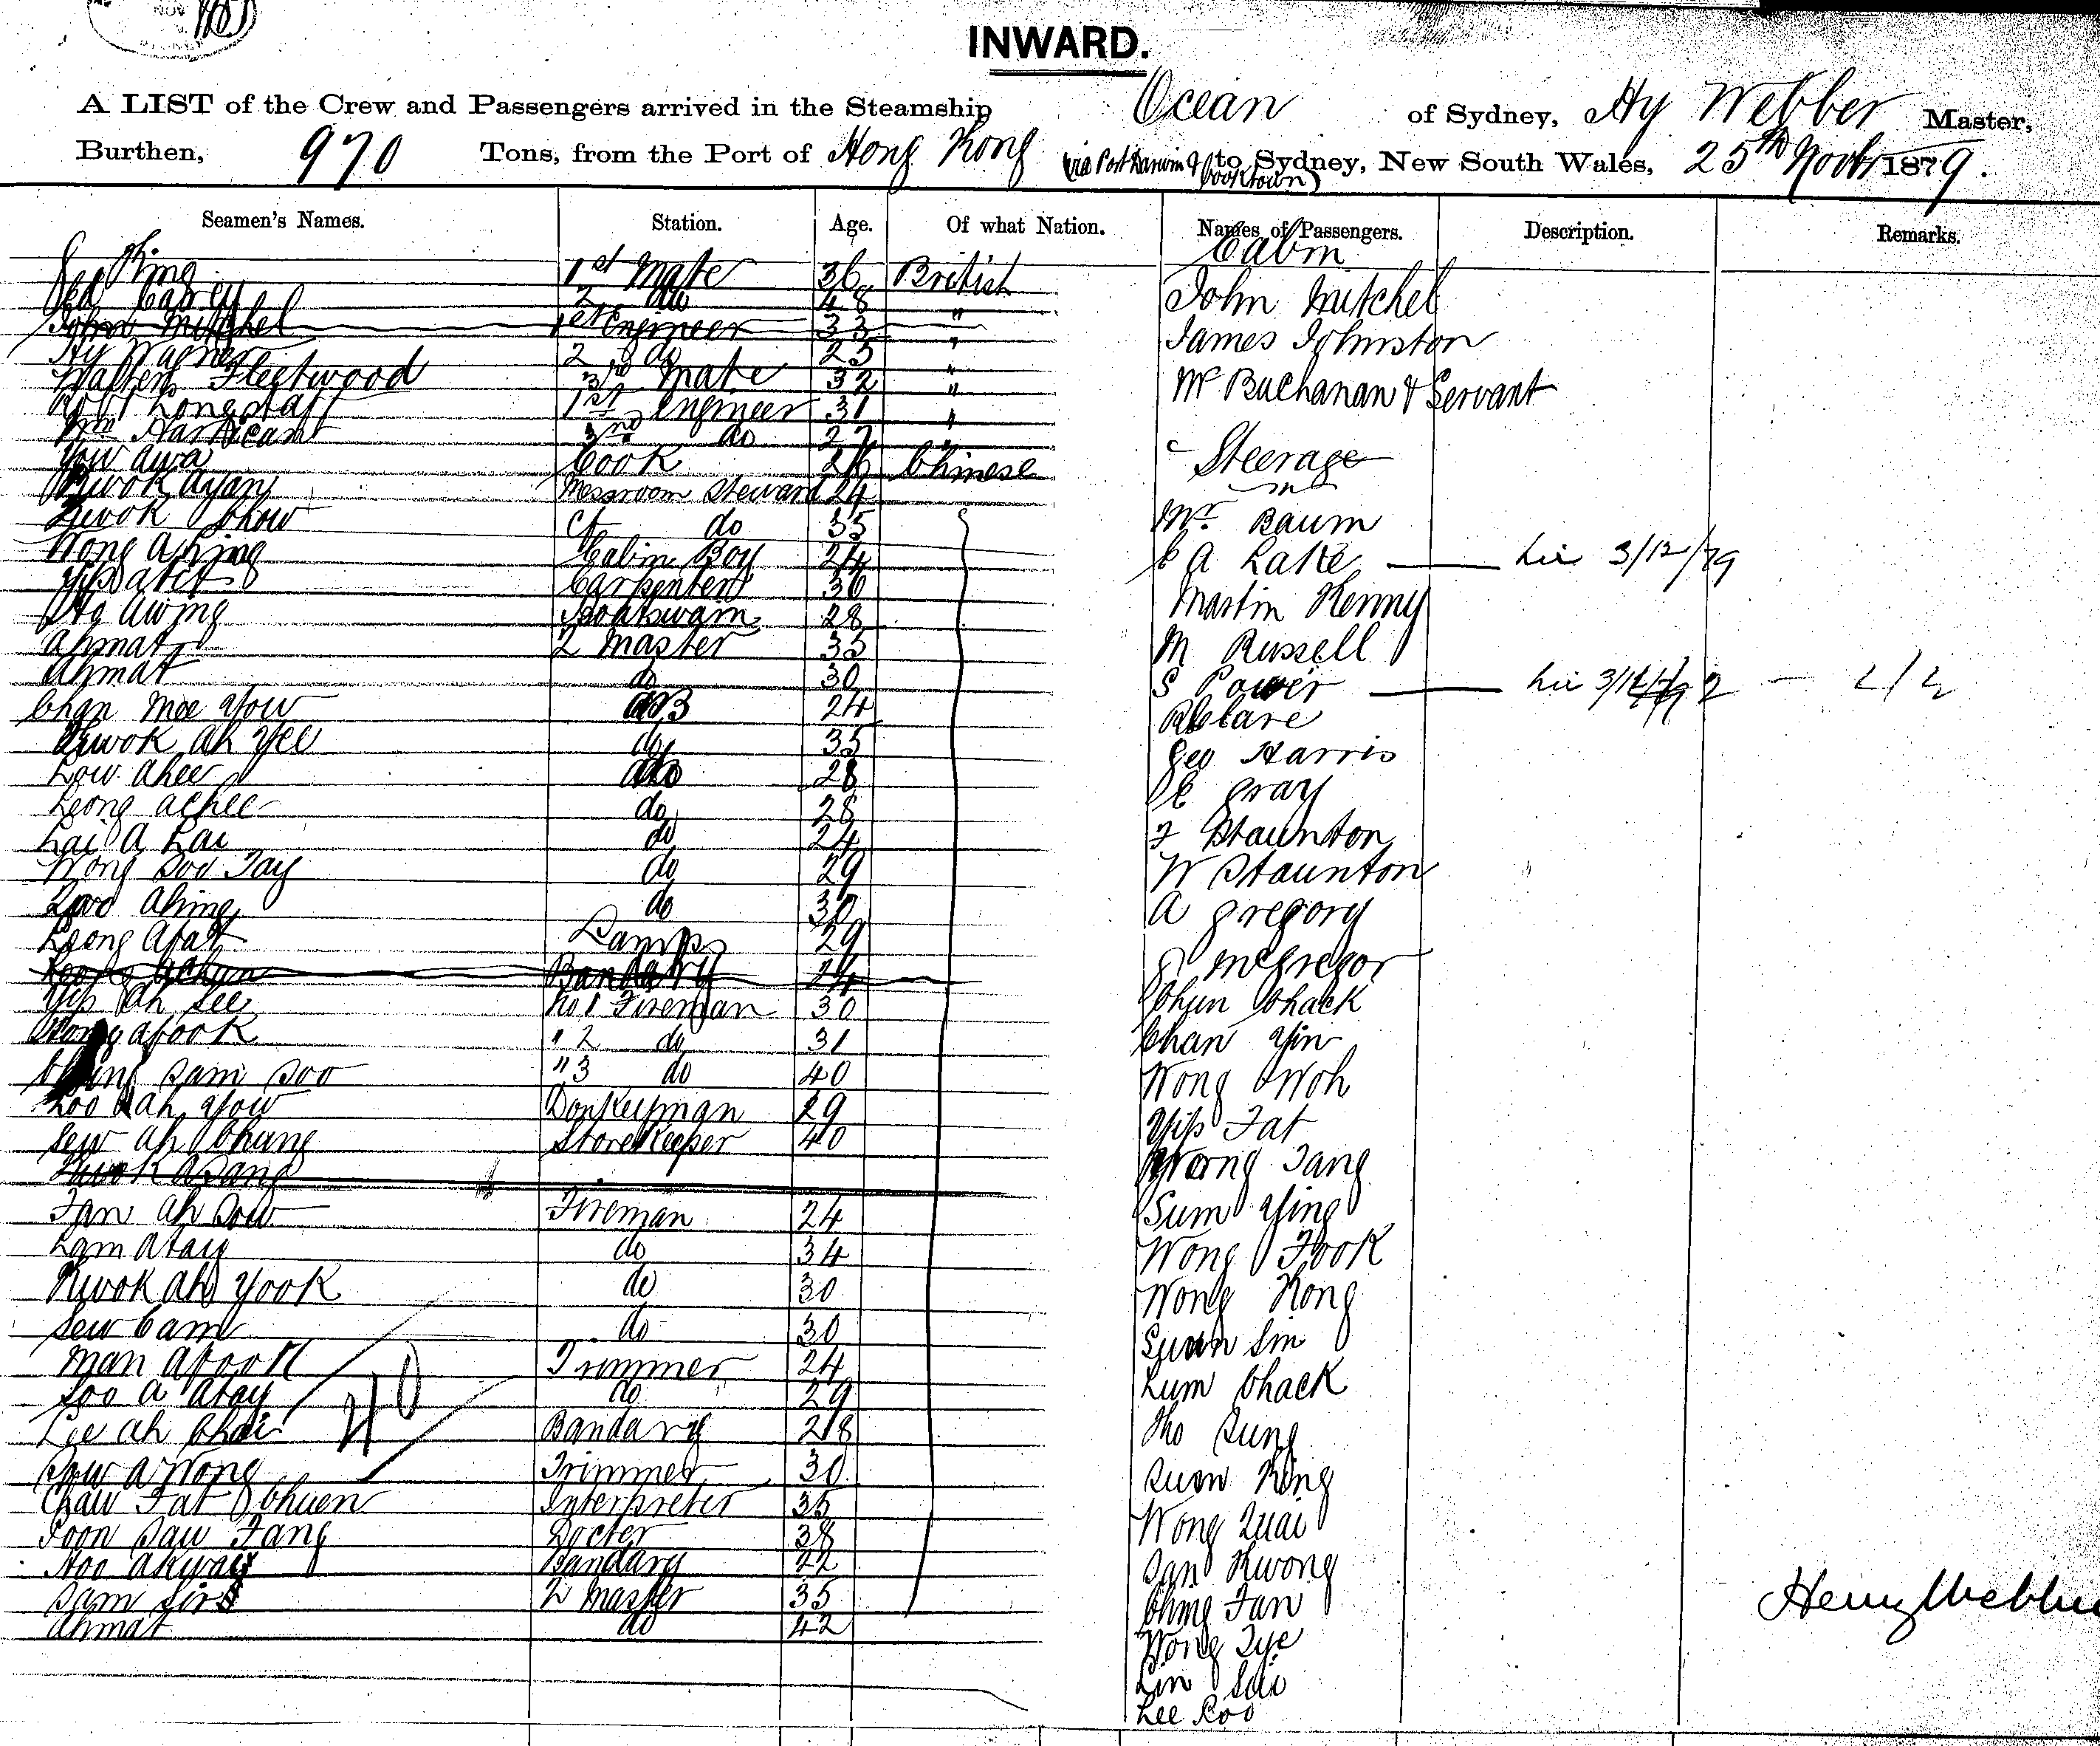 NOV
INWARD.
A LIST of the Crew and Passengers arrived in the Steamship Ocean of Sydney, Hy Webber Master,
Burthen, 970 Tons, from the Port of Hong Kong (via Port Darwin & Cooktown) to Sydney, New South Wales, 25th Novbr 1879.
Seamen's Names. Station. Age. Of what Nation. Names of Passengers. Description. Remarks.
Cabin
King 1st Mate 36 British John Mitchel
2 do 48 "
John Mitchel 1st Engineer 33 " James Johnston
Hy Wagner 2 do 25 "
Walter Fleetwood 3rd Mate 32 " Mr Buchanan & Servant
Robt Longstaff 1st Engineer 31 "
Wm 3rd do 27 "
Yow Awa Cook 26 Chinese Steerage
Kwok Ayan Messroom Steward 24
Kwok Chow Cf do 35 Mr Baum
Wong Ahing Cabin Boy 24 C A Lake Lie 3/12/79
Yip Carpenter 30 Martin Kenny
Awing Boatswain 28
Ahmat 2 Master 33 M Russell
Ahmat do 30 S Power Lie 3/12/79 2 2/2
Chan Moe Yow AB 24 R Clare
Kwok Ah Yee do 35 Geo Harris
Low Ahee do 28 Gray
Leong Achee do 28
Lai A Lai do 24 F Staunton
Wong Soo Tay do 29 W Staunton
Ahing do 30 A Gregory
Leong Afat Lamps 29 McGregor
Leong Achun Bandary 24
Yip Ah See No 1 Fireman 30 Chun Chack
Wong Afook " 2 do 31 Chan Yin
Sam Soo " 3 do 40 Wong Woh
Loo Ah Yow Donkeyman 29 Yip Fat
Sew Ah Chung Storekeeper 40
Kwok Asang Wong Tang
Fan Ah Sow Fireman 24 Sum Ying
Lam Atay do 34 Wong Fook
Kwok Ah Yook do 30 Wong Kong
Sew Cam do 30 Sin
Man Afook Trimmer 24 Lum Chack
Soo A Atay do 29
40
Lee Ah Chai Bandary 28 Sung
A Wong Trimmer 30 King
Chaw Fat Chuen Interpreter 35 Wong Quai
Soon Saw Fang Docter 38
Hoo Akway Bandary 22 San Kwong
Sam Sing 2 Master 35 Ching Fan Henry Webber
Ahmat do 42 Wong Tye
Lin Sai
Lee Koo